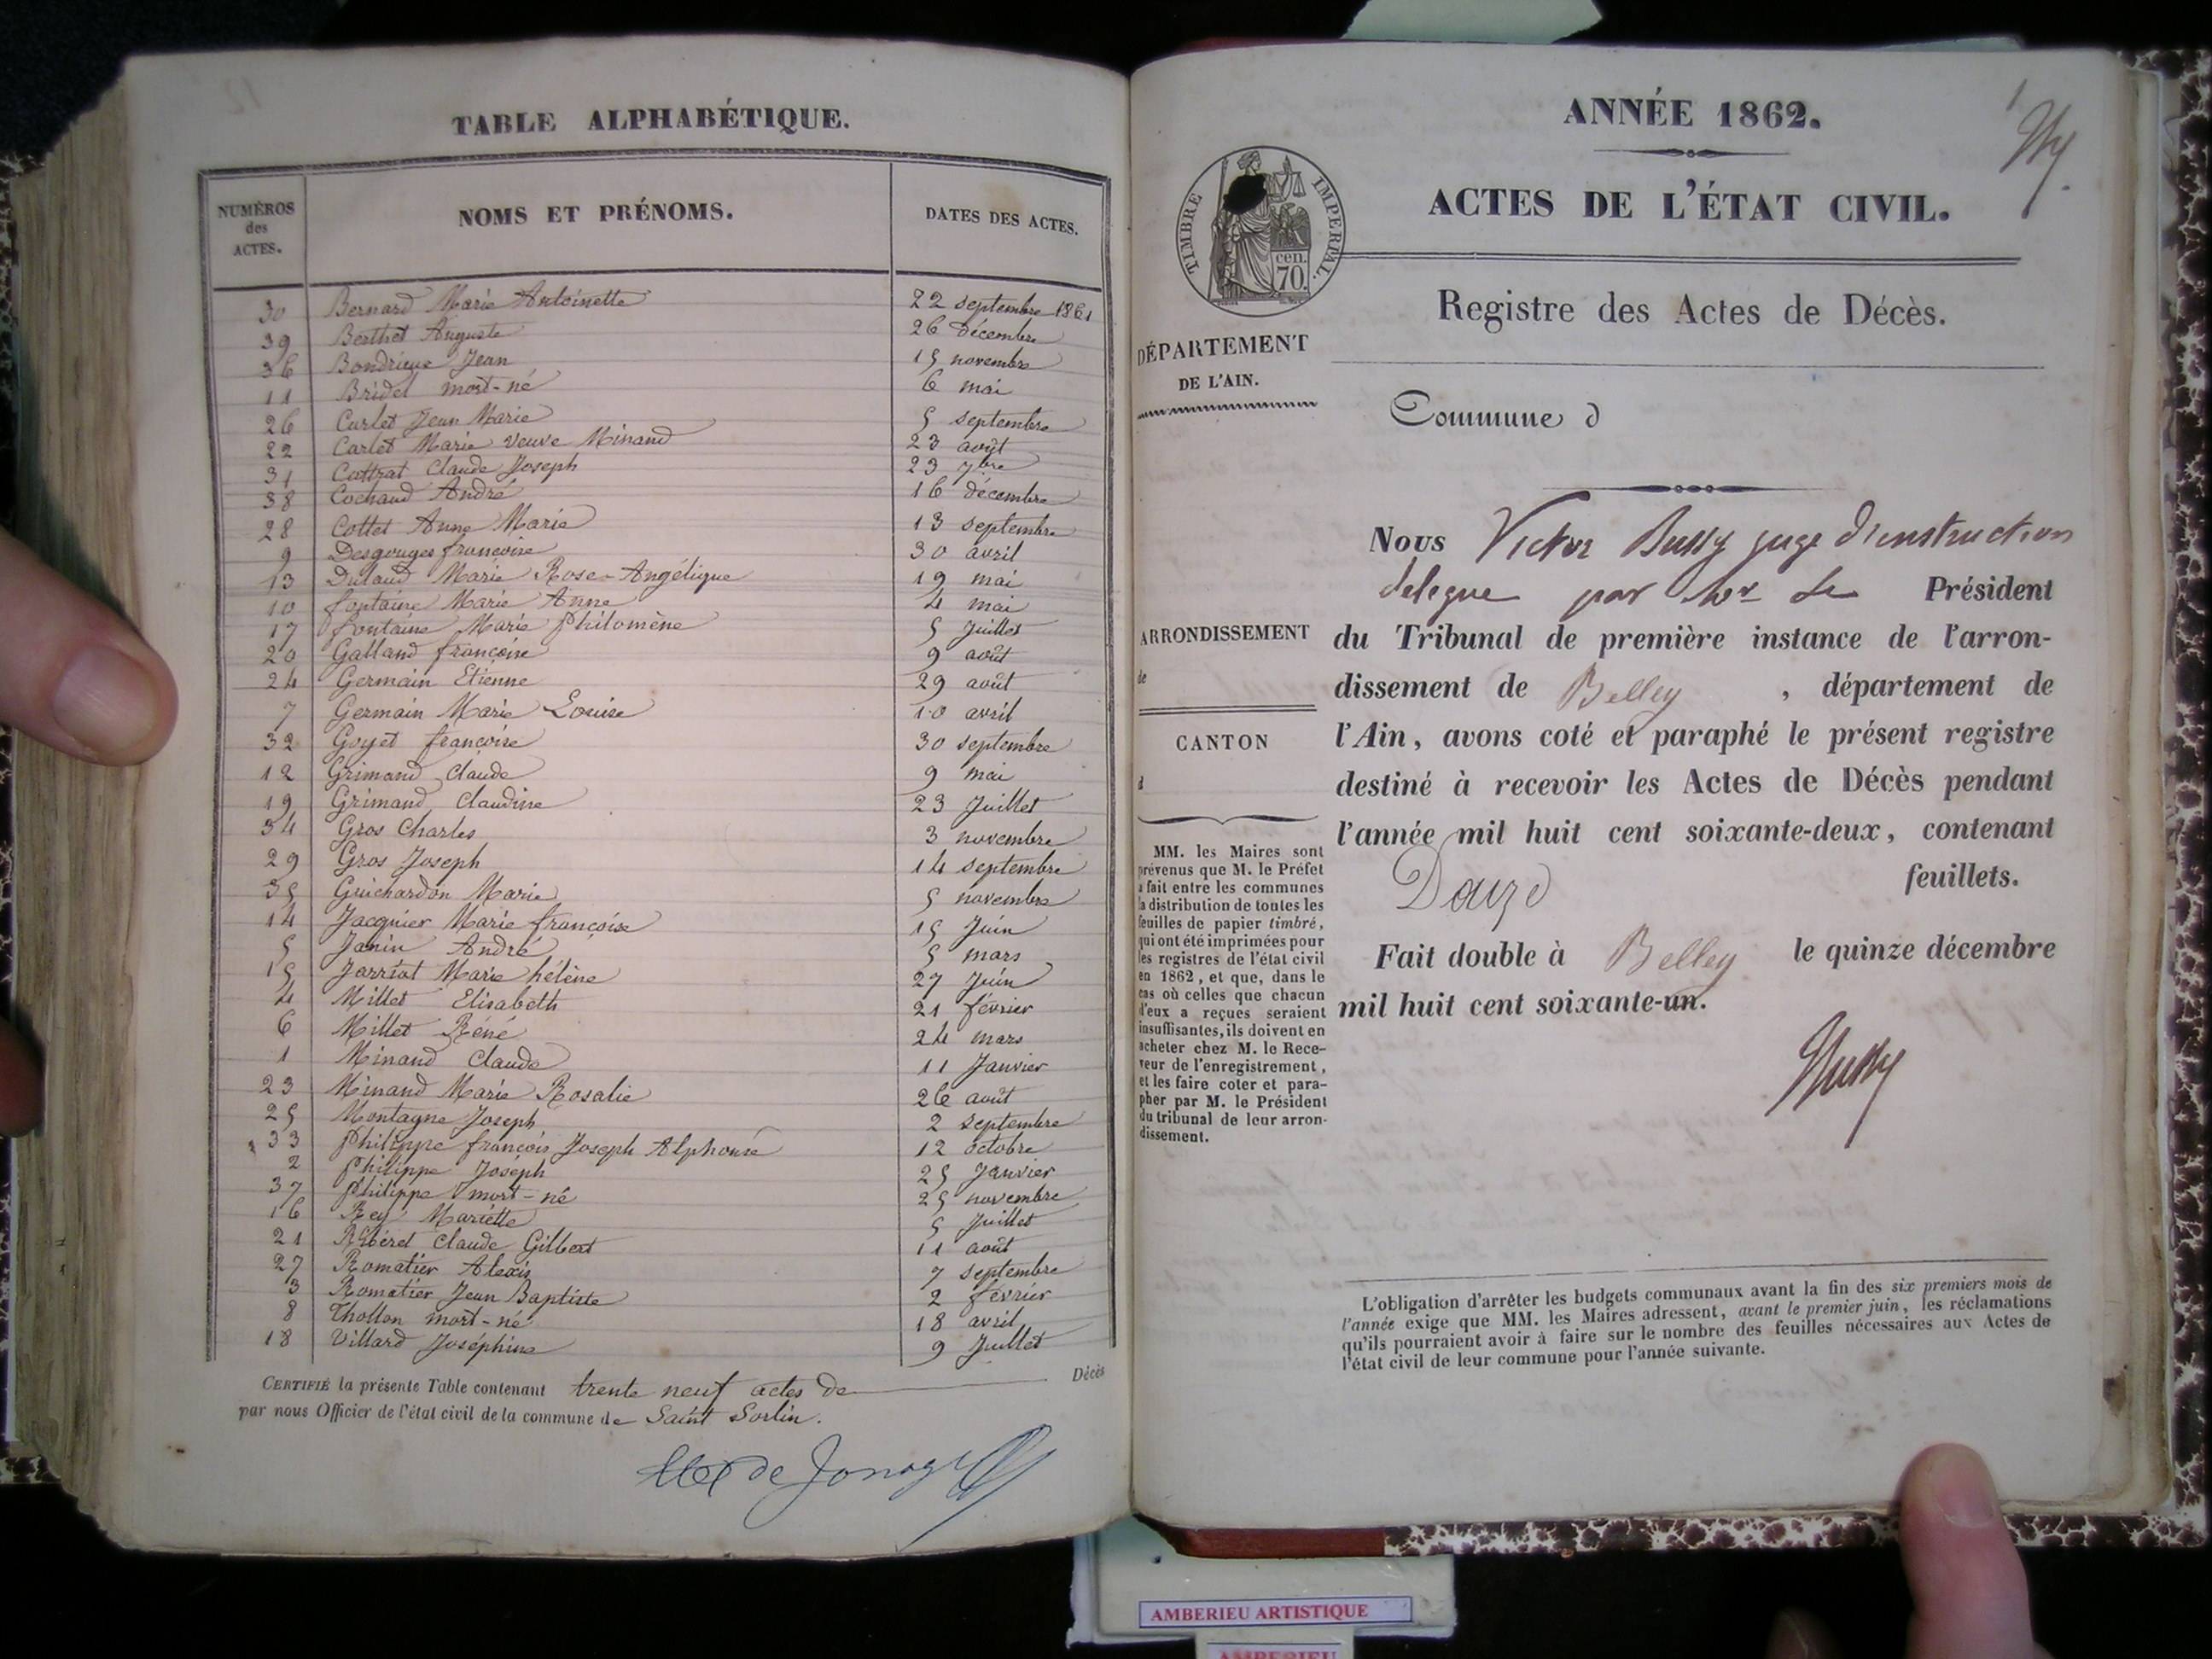 TABLE ALPHABÉTIQUE.
NUMÉROS des ACTES. NOMS ET PRÉNOMS. DATES DES ACTES.
30 Bernard Marie Antoinette 22 septembre 1861
39 Berthet Auguste 26 décembre
36 Bondrieux Jean 15 novembre
11 Bridel mort-né 6 mai
26 Carlet Jean Marie 5 septembre
22 Carlet Marie veuve Minand 23 août
31 Cattrat Claude Joseph 23 7bre
38 Cochaud André 16 décembre
28 Cottet Anne Marie 13 septembre
9 Desgouges françoise 30 avril
13 Dulaud Marie Rose-Angélique 19 mai
10 fontaine Marie Anne 4 mai
17 fontaine Marie Philomène 5 Juillet
20 Galland françoise 9 août
24 Germain Etienne 29 août
7 Germain Marie Louise 10 avril
32 Goyet françoise 30 septembre
12 Grimand Claude 9 mai
19 Grimand Claudine 23 Juillet
34 Gros Charles 3 novembre
29 Gros Joseph 14 septembre
35 Guichardon Marie 5 novembre
14 Jacquier Marie françoise 15 Juin
5 Janin André 5 mars
15 Jarriat Marie hélène 27 Juin
4 Millet Elisabeth 21 février
6 Millet Réné 24 mars
1 Minand Claude 11 Janvier
23 Minand Marie Rosalie 26 août
25 Montagne Joseph 2 septembre
33 Philippe françois Joseph Alphonse 12 octobre
2 Philippe Joseph 25 Janvier
37 Philippe mort-né 25 novembre
16 Rey Mariette 5 Juillet
21 Ribéret Claude Gilbert 11 août
27 Romatier Alexis 7 septembre
3 Romatier Jean Baptiste 2 février
8 Thollon mort-né 18 avril
18 Villard Joséphine 9 Juillet
CERTIFIÉ la présente Table contenant trente neuf actes de Décès
par nous Officier de l'état civil de la commune de Saint Sorlin.
de Jonage
ANNÉE 1862.
1
ACTES DE L'ÉTAT CIVIL.
TIMBRE IMPERIAL.
cen.
70.
Registre des Actes de Décès.
DÉPARTEMENT
DE L'AIN.
Commune d
ARRONDISSEMENT
de
CANTON
d
MM. les Maires sont
prévenus que M. le Préfet
a fait entre les communes
la distribution de toutes les
feuilles de papier timbré,
qui ont été imprimées pour
les registres de l'état civil
en 1862, et que, dans le
cas où celles que chacun
d'eux a reçues seraient
insuffisantes, ils doivent en
acheter chez M. le Rece-
veur de l'enregistrement,
et les faire coter et para-
pher par M. le Président
du tribunal de leur arron-
dissement.
Nous Victor Bussy juge d'instruction
delegue par Mr Le Président
du Tribunal de première instance de l'arron-
dissement de Belley , département de
l'Ain, avons coté et paraphé le présent registre
destiné à recevoir les Actes de Décès pendant
l'année mil huit cent soixante-deux, contenant
Douze feuillets.
Fait double à Belley le quinze décembre
mil huit cent soixante-un.
Bussy
L'obligation d'arrêter les budgets communaux avant la fin des six premiers mois de
l'année exige que MM. les Maires adressent, avant le premier juin, les réclamations
qu'ils pourraient avoir à faire sur le nombre des feuilles nécessaires aux Actes de
l'état civil de leur commune pour l'année suivante.
AMBERIEU ARTISTIQUE
AMBERIEU